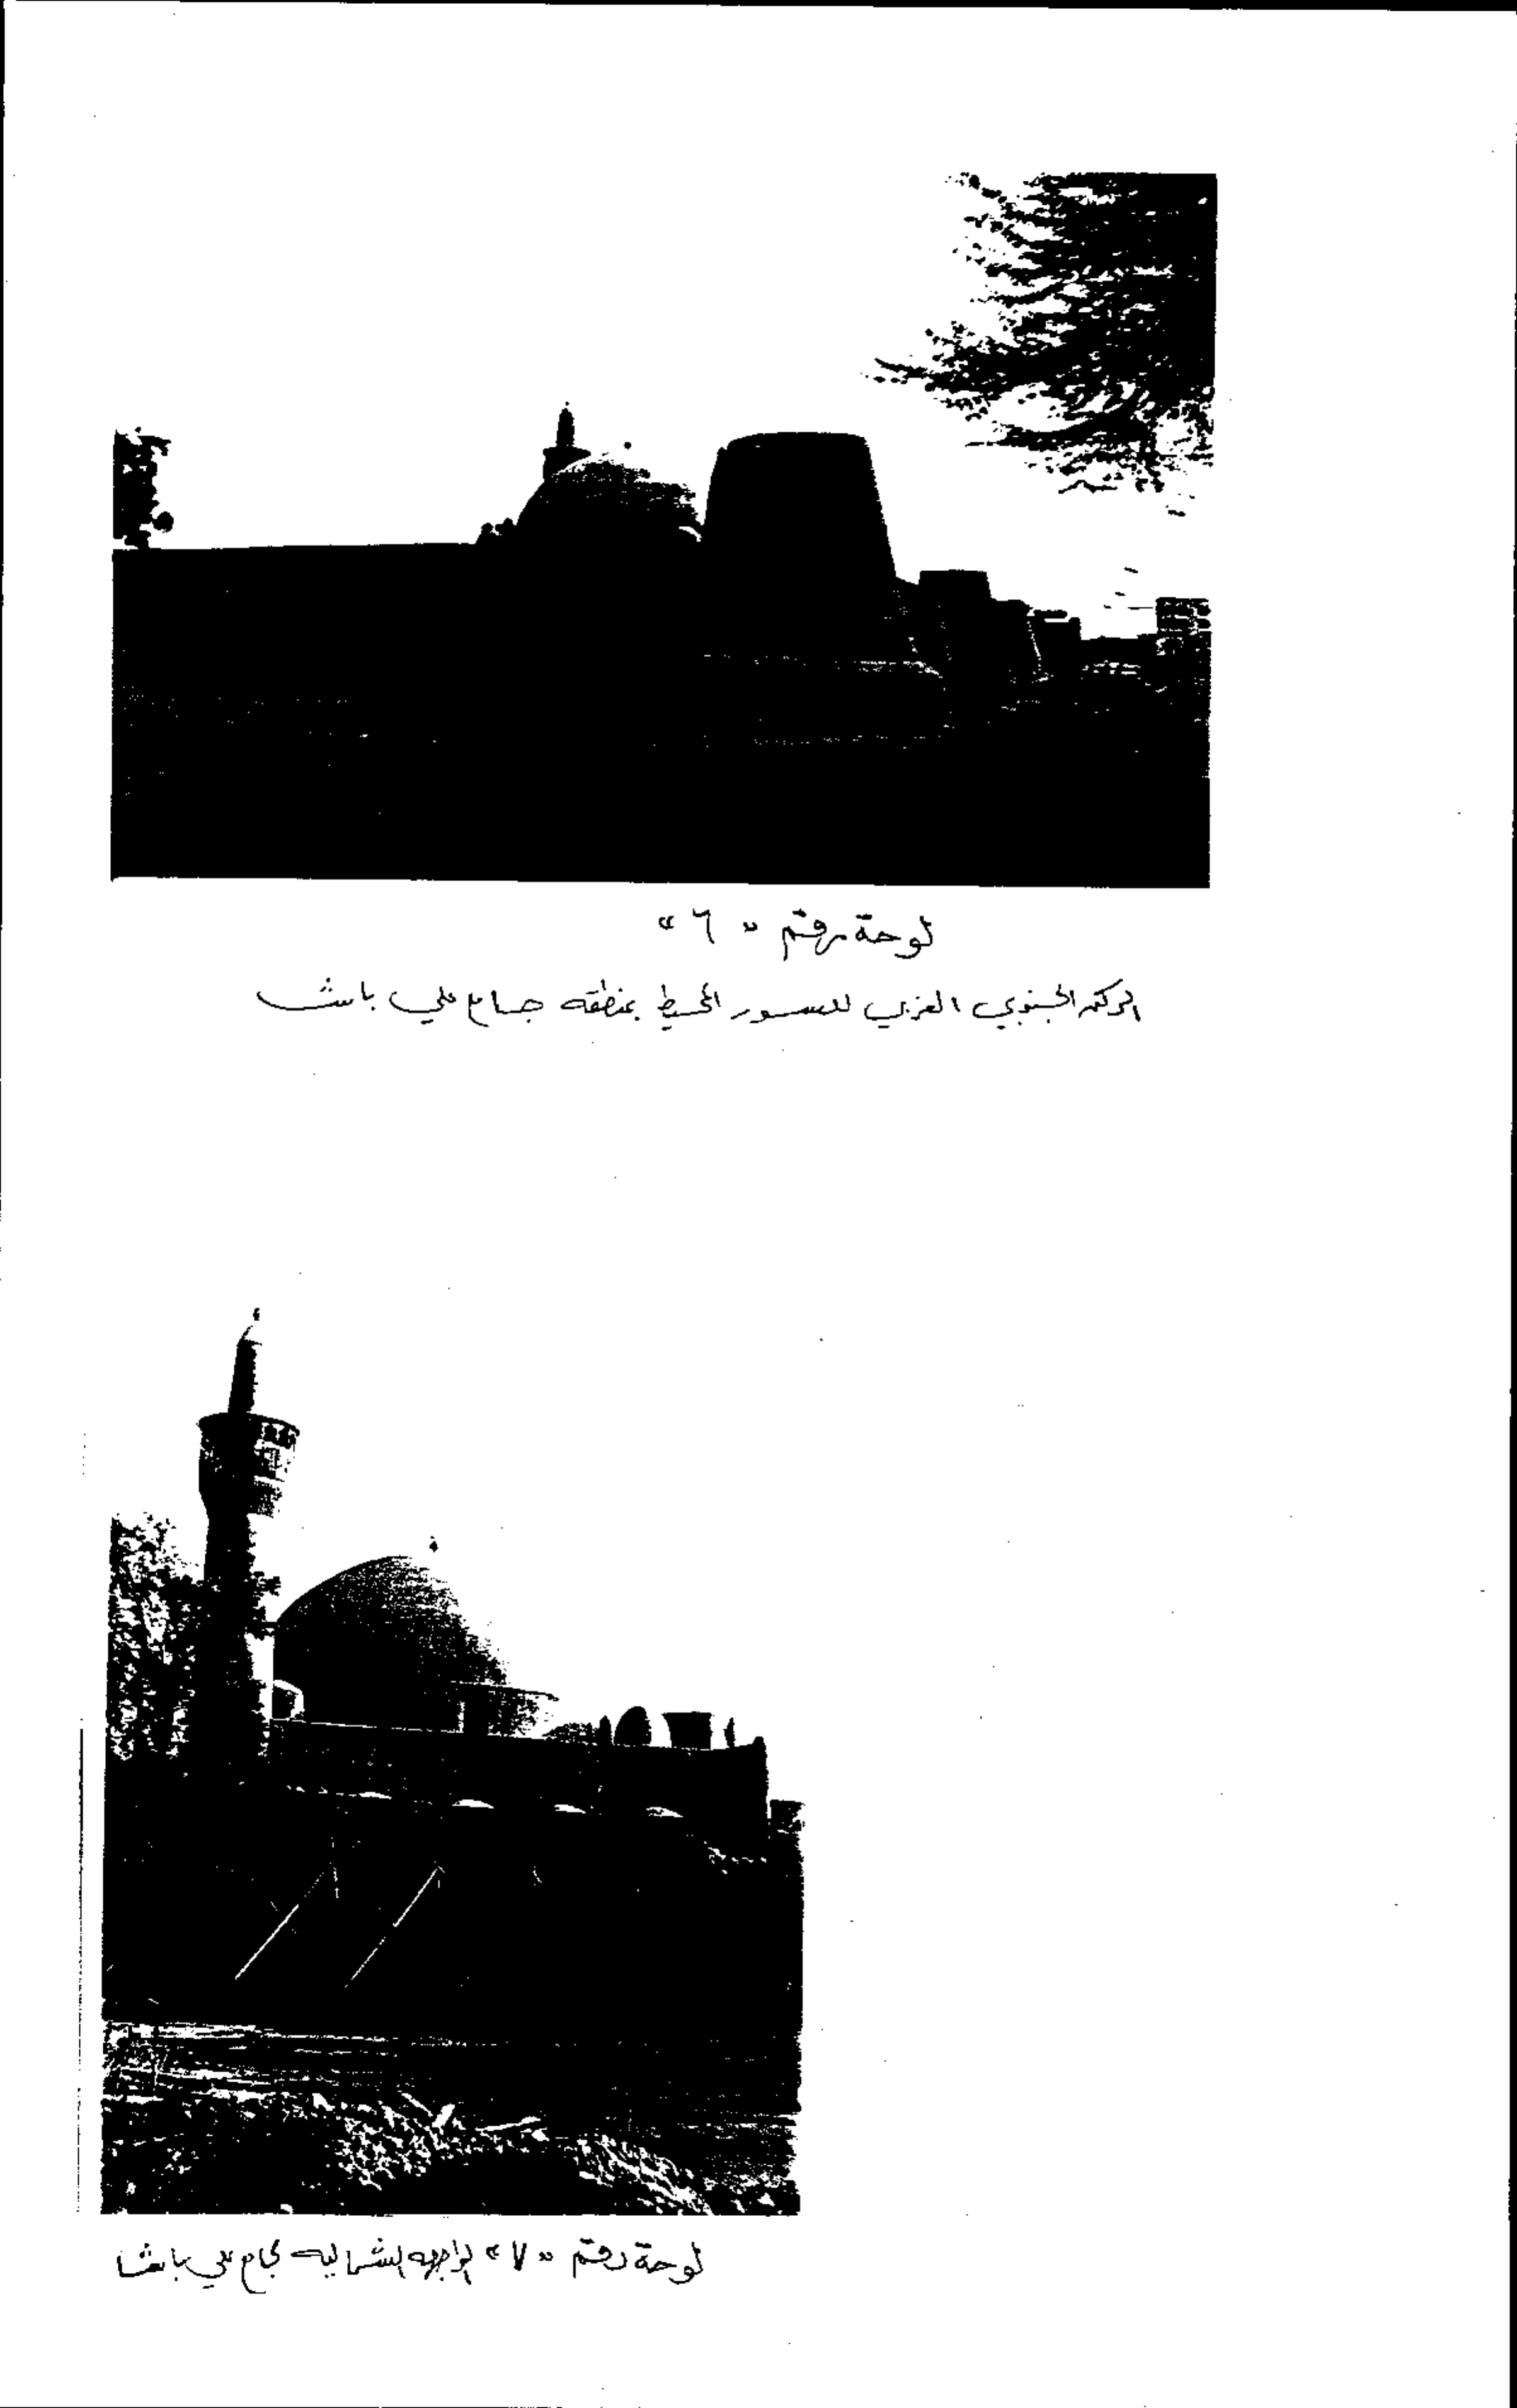 لوحة رقم « ٦ »
الركن الجنوبي الغربي للسور المحيط بمنطقه جامع علي باشا
لوحة رقم « ٧ » الواجهه الشماليه لجامع علي باشا